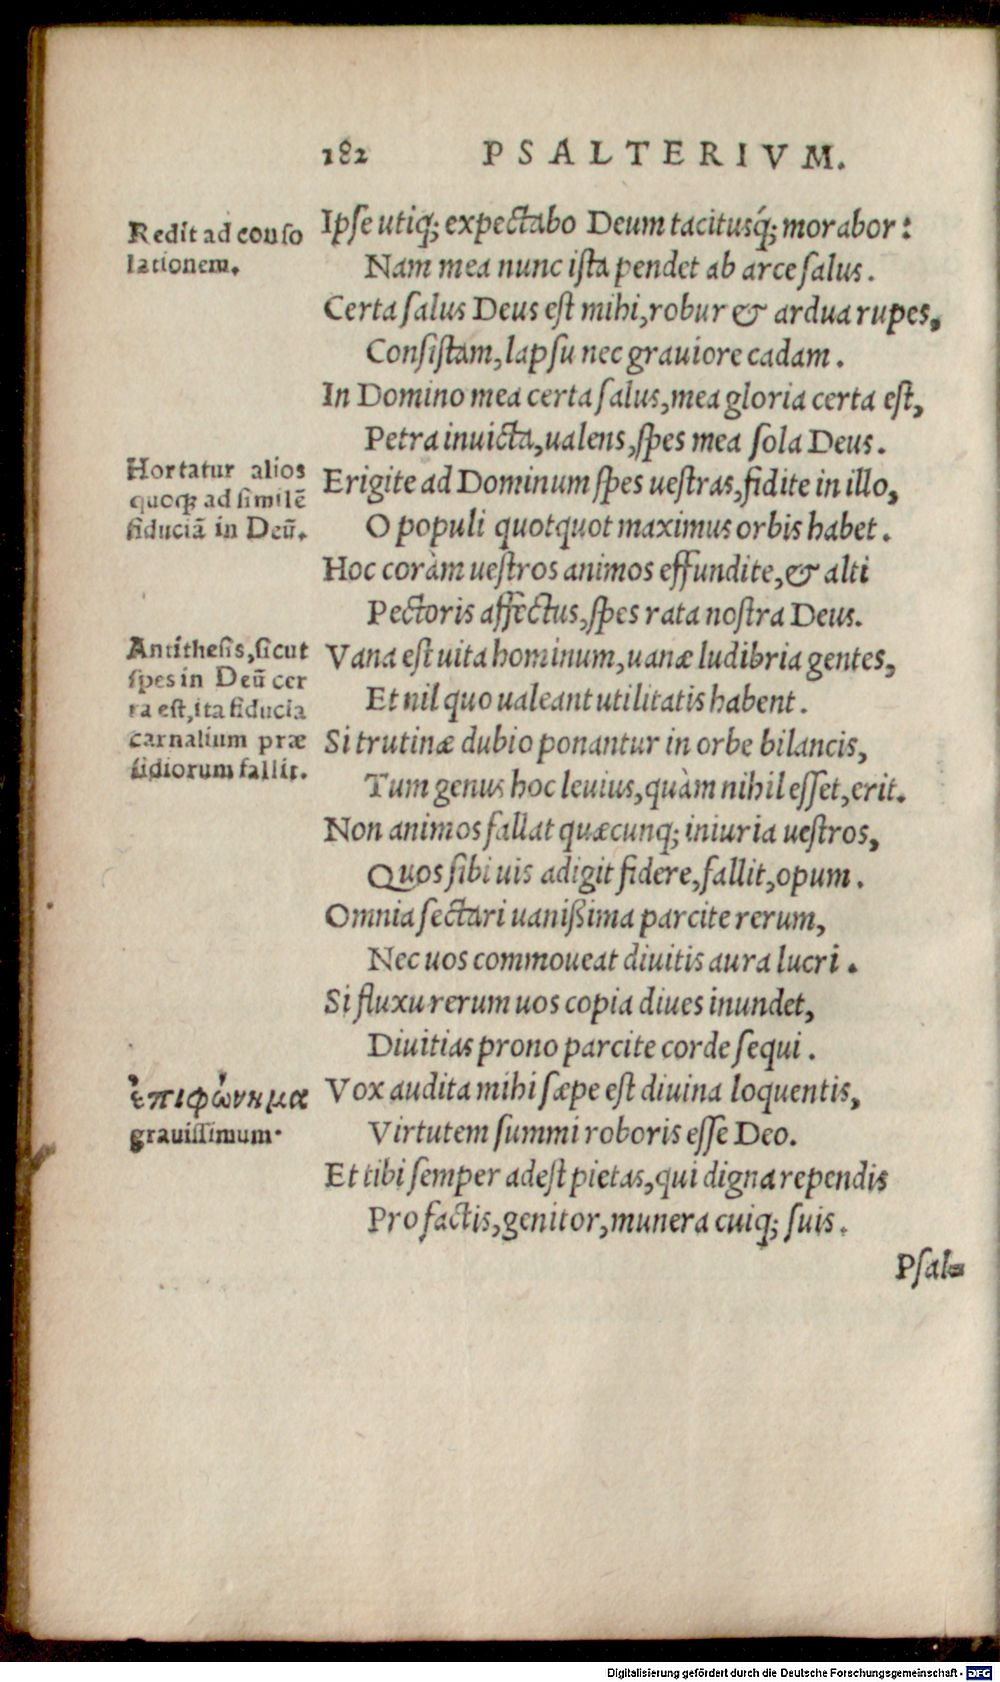 182 PSALTERIVM.
Redit ad conso
lationem.
Ipſe utiq; expectabo Deum tacitusq́; morabor:
Nam mea nunc iſta pendet ab arce ſalus.
Certa ſalus Deus eſt mihi, robur & ardua rupes,
Conſiſtam, lapſu nec grauiore cadam.
In Domino mea certa ſalus, mea gloria certa eſt,
Petra inuicta, ualens, ſpes mea ſola Deus.
Hortatur alios
quoq; ad ſimilē
fiduciā in Deū.
Erigite ad Dominum ſpes ueſtras, fidite in illo,
O populi quotquot maximus orbis habet.
Hoc coràm ueſtros animos effundite, & alti
Pectoris affectus, ſpes rata noſtra Deus.
Antitheſis, ſicut
ſpes in Deū cer
ta eſt, ita fiducia
carnalium præ
ſidiorum fallit.
Vana eſt uita hominum, uanæ ludibria gentes,
Et nil quo ualeant utilitatis habent.
Si trutinæ dubio ponantur in orbe bilancis,
Tum genus hoc leuius, quàm nihil eſſet, erit.
Non animos fallat quæcunq; iniuria ueſtros,
Quos ſibi uis adigit fidere, fallit, opum.
Omnia ſectari uanißima parcite rerum,
Nec uos commoueat diuitis aura lucri.
Si fluxu rerum uos copia diues inundet,
Diuitias prono parcite corde ſequi.
ἐπιφώνημα
grauiſſimum.
Vox audita mihi ſæpe eſt diuina loquentis,
Virtutem ſummi roboris eſſe Deo.
Et tibi ſemper adeſt pietas, qui digna rependis
Pro factis, genitor, munera cuiq; ſuis.
Pſal-
Digitalisierung gefördert durch die Deutsche Forschungsgemeinschaft - DFG